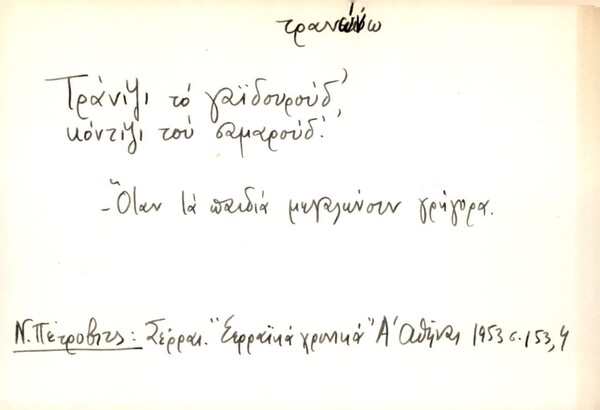 τρανεύω
Τράνιψι τό γαϊδουρούδ'
κόντιψι τού σαμαρούδ'.
- Ὅταν τά παιδιά μεγαλώνουν γρήγορα.
Ν. Πέτροβιτς: Σέρραι. "Σερραϊκά χρονικά" Α' Αθήναι 1953 σ. 153, 4